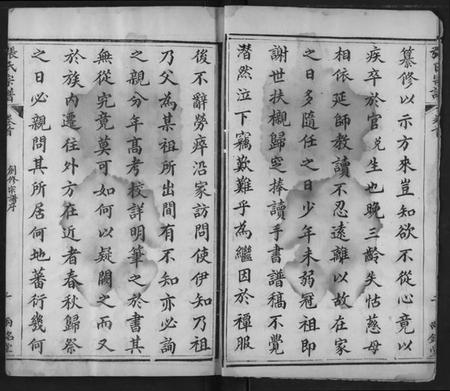 纂修以示方來豈知欲不從心竟以
疾卒於官兌生也晚三齡失怙慈母
相依延師教讀不忍遠離以故在家
之日多隨任之日少年未弱冠祖即
謝世扶櫬歸窆捧讀手書譜稿不覺
潸然泣下竊歎難乎為繼因於禫服
張氏宗譜
卷首
創修宗譜序
後不辭勞瘁沿家訪問使伊知乃祖
乃父為某祖所出間有不知亦必詢
之親分年高考授詳明筆之於書其
無從究竟莫可如何以疑闕之而又
於族內遷往外方在近者春秋歸祭
之日必親問其所居何地蕃衍幾何